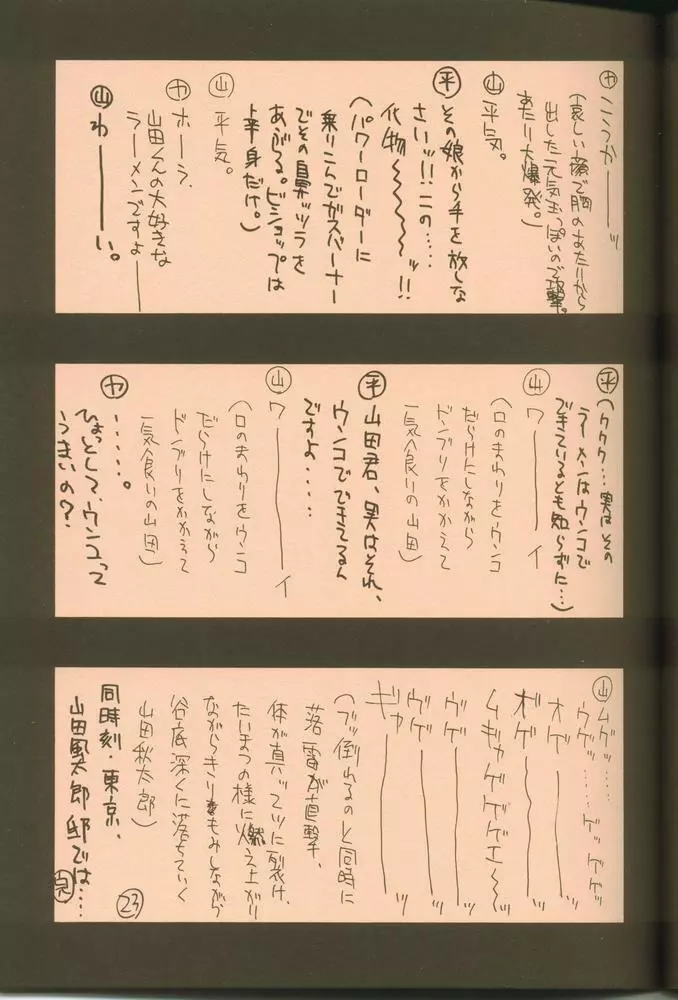 ヤ こ、こうかーーーッ
(哀しい顔で胸のあたりから
出した元気玉っぽいので攻撃。
あたり大爆発。)
山 平気。
平 その娘から手を放しな
さいッ!!この……
化物〜〜〜〜ッ!!
(パワーローダーに
乗りこんでガスバーナー
でその鼻ッツラを
あぶる。ビショップは
上半身だけ。)
山 平気。
ヤ ホーラ、
山田くんの大好きな
ラーメンですよーー
山 わーーーい。
平 (ククク…実はその
ラーメンはウンコで
できているとも知らずに…)
山 ワーーーイ
(口のまわりをウンコ
だらけにしながら
ドンブリをかかえて
一気食いの山田)
平 山田君、実はそれ、
ウンコでできてるん
ですよ……
山 ワーーーイ
(口のまわりをウンコ
だらけにしながら
ドンブリをかかえて
一気食いの山田)
ヤ ……。
ひょっとして、ウンコって
うまいの?
山 ムゲッ……
ウゲッ……ゲッゲゲッ
オゲーーーッ
オゲーーーッ
ムギャゲゲゲエ〜〜ッ
ウゲーーーッ
ウゲーーーッ
ギャーーーッ
(ブッ倒れるのと同時に
落雷が直撃、
体が真ッ二ツに裂け、
たいまつの様に燃え上がり
ながらきりもみしながら
谷底深くに落ちていく
山田秋太郎)
同時刻・東京、
山田風太郎邸では…
完
23